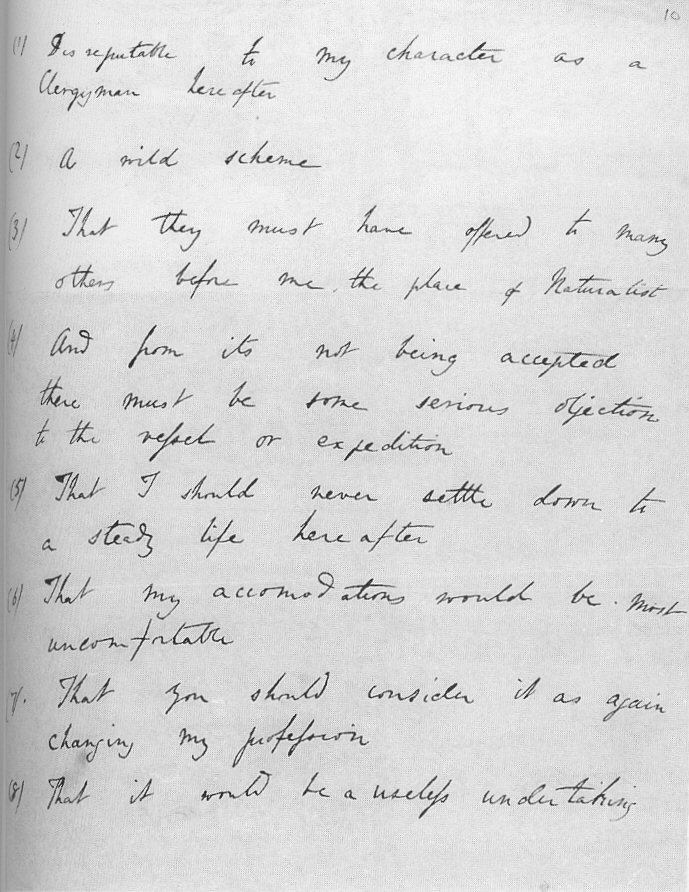 10
(1) Disreputable to my character as a
Clergyman hereafter
(2) A wild scheme
(3) That they must have offered to many
others before me, the place of Naturalist
(4) And from its not being accepted
there must be some serious objection
to the vessel or expedition
(5) That I should never settle down to
a steady life hereafter
(6) That my accomodations would be most
uncomfortable
7. That you should consider it as again
changing my profession
(8) That it would be a useless undertaking